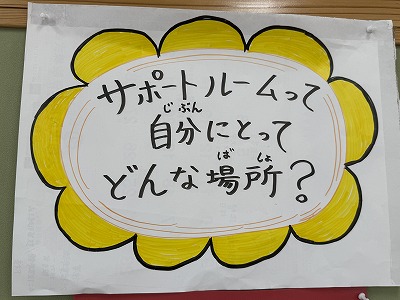 サポートルームって
自分にとって
どんな場所？
じぶん
ばしょ